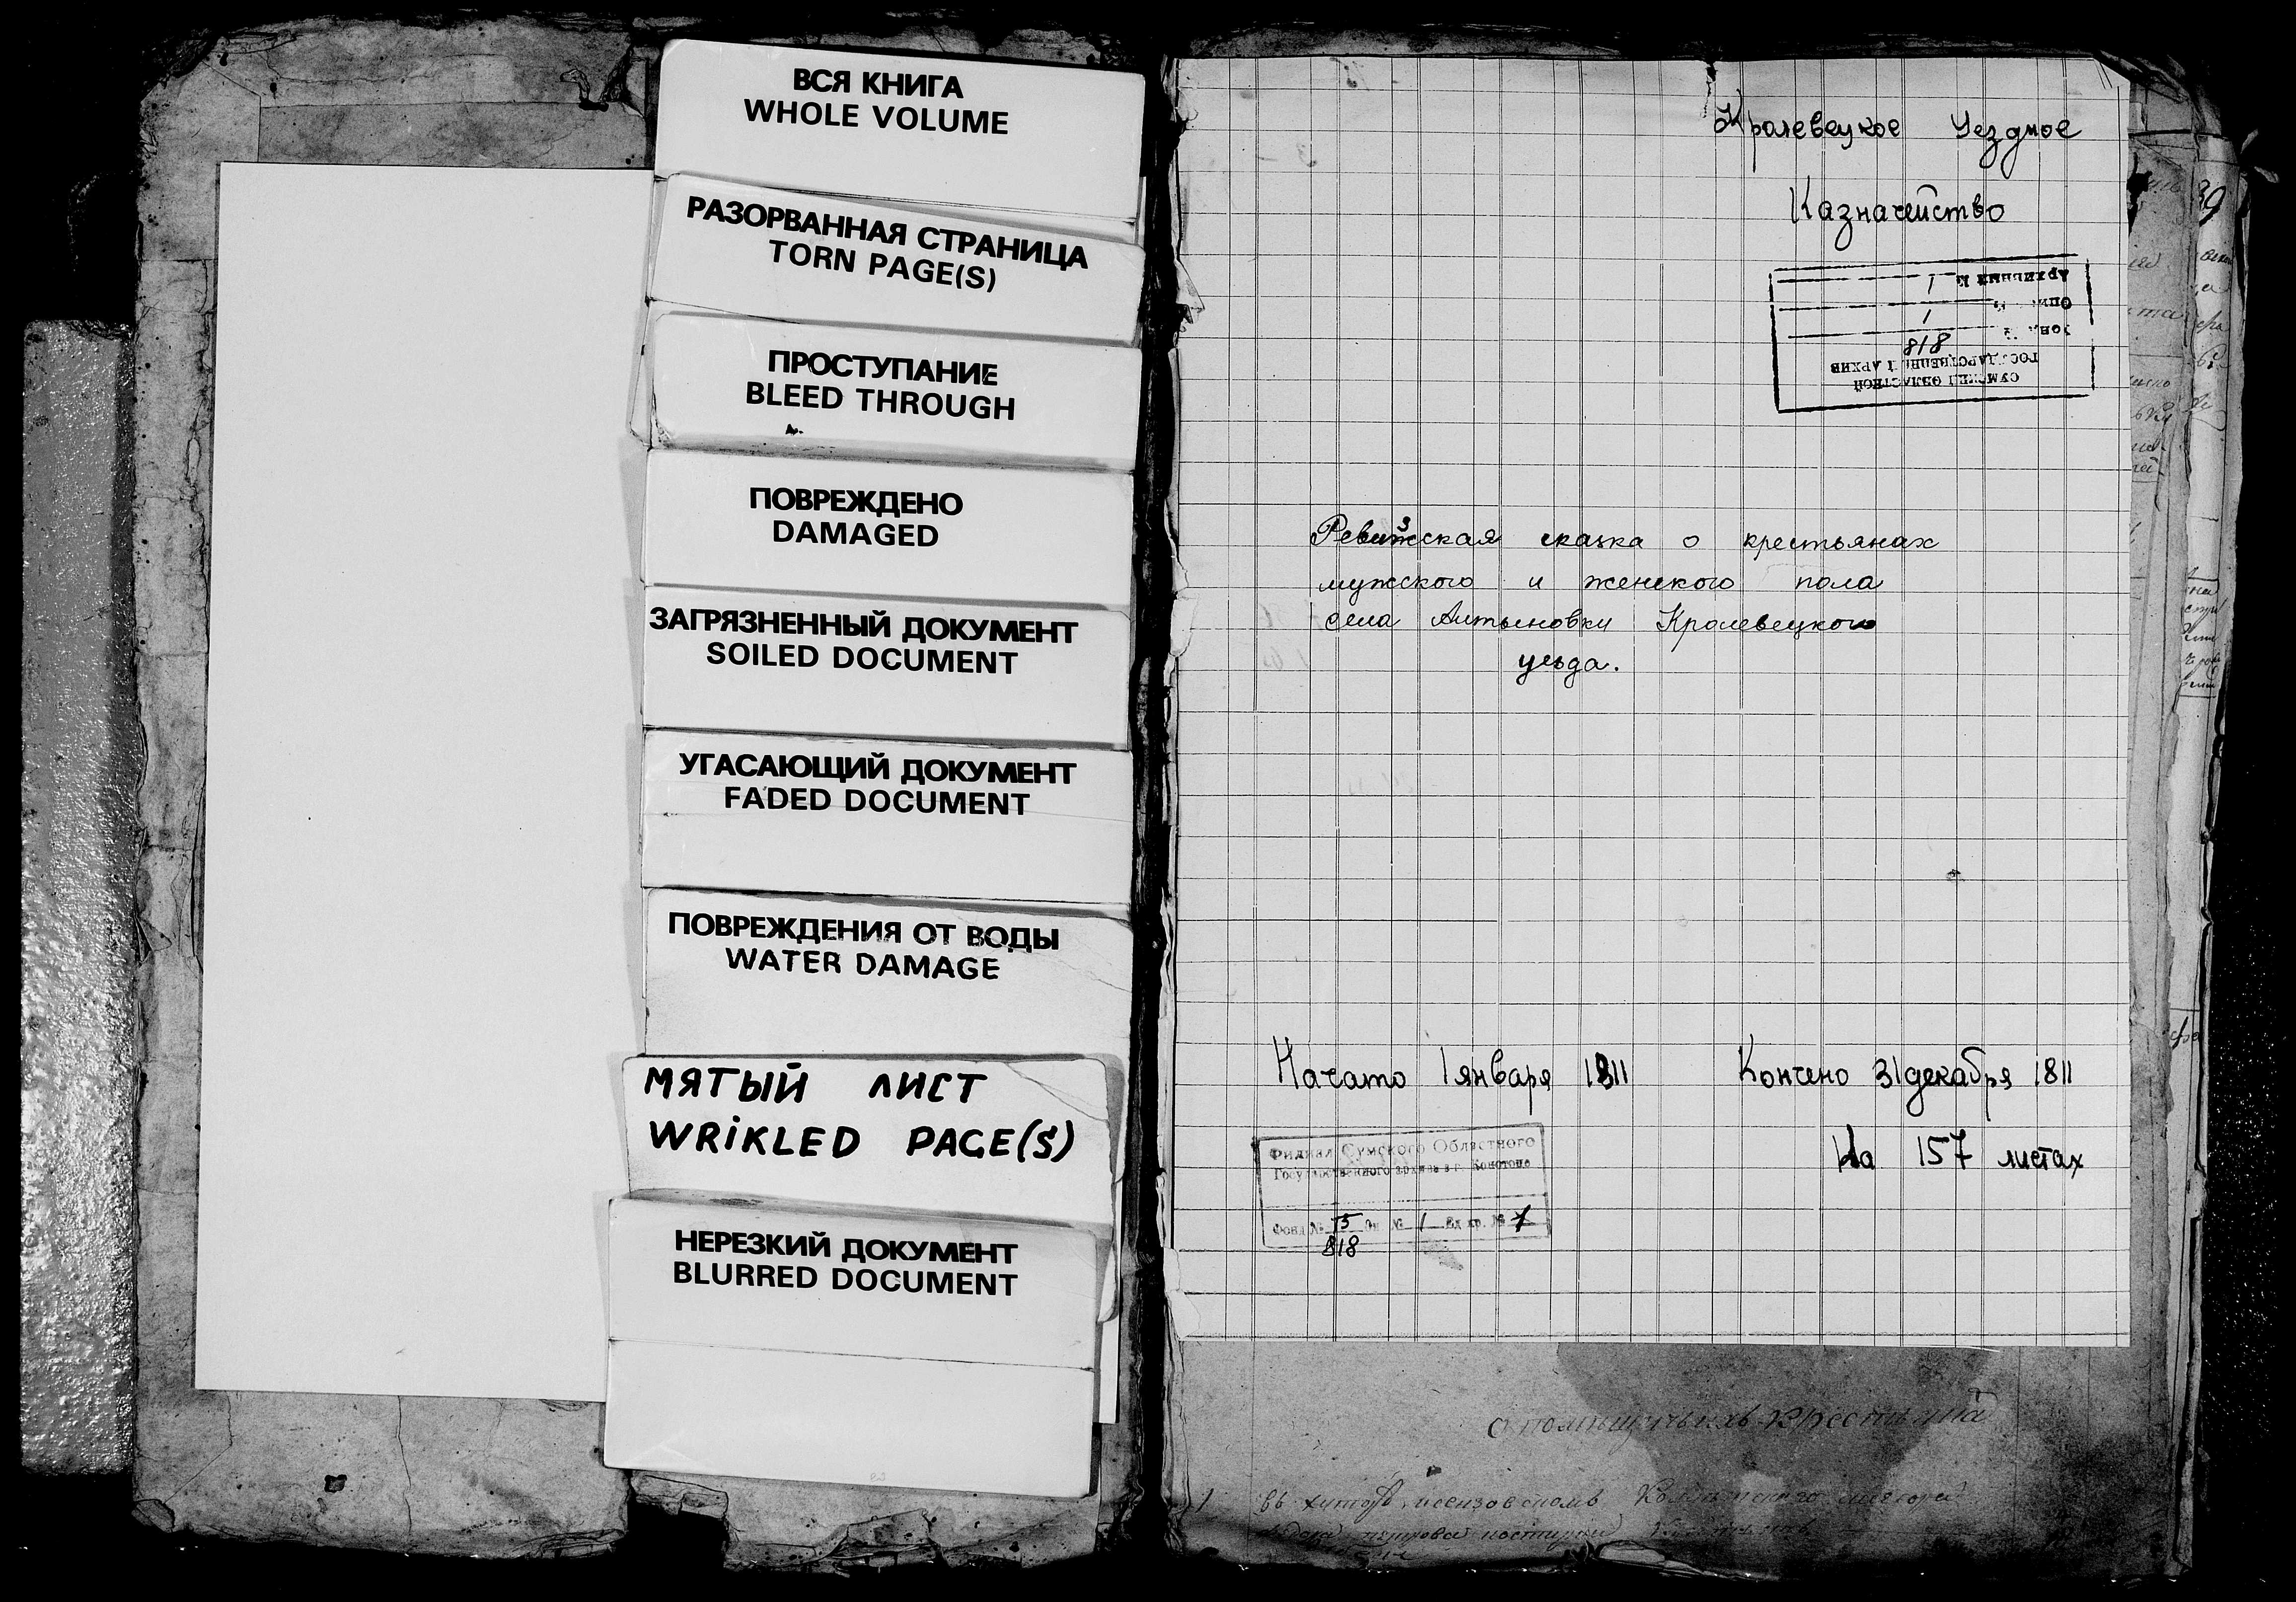 ВСЯ КНИГА
WHOLE VOLUME
РАЗОРВАННАЯ СТРАНИЦА
TORN PAGE(S)
ПРОСТУПАНИЕ
BLEED THROUGH
ПОВРЕЖДЕНО
DAMAGED
ЗАГРЯЗНЕННЫЙ ДОКУМЕНТ
SOILED DOCUMENT
УГАСАЮЩИЙ ДОКУМЕНТ
FADED DOCUMENT
ПОВРЕЖДЕНИЯ ОТ ВОДЫ
WATER DAMAGE
МЯТЫЙ ЛИСТ
WRiKLED PAGE(S)
НЕРЕЗКИЙ ДОКУМЕНТ
BLURRED DOCUMENT
Кролевецкое Уездное
Казначейство
СУМСКИЙ ОБЛАСТНОЙ
ГОСУДАРСТВЕННЫЙ АРХИВ
818
1
1
Ревизская сказка о крестьянах
мужского и женского пола
села Алтыновки Кролевецкого
уезда.
Начато 1 января 1811 Кончено 31 декабря 1811
На 157 листах
Филиал Сумского Областного
Государственного архива в г. Конотопе
Фонд № 15 Оп. № 1 Ед. хр. № 1
818
О помещичьихъ крестьяна
39